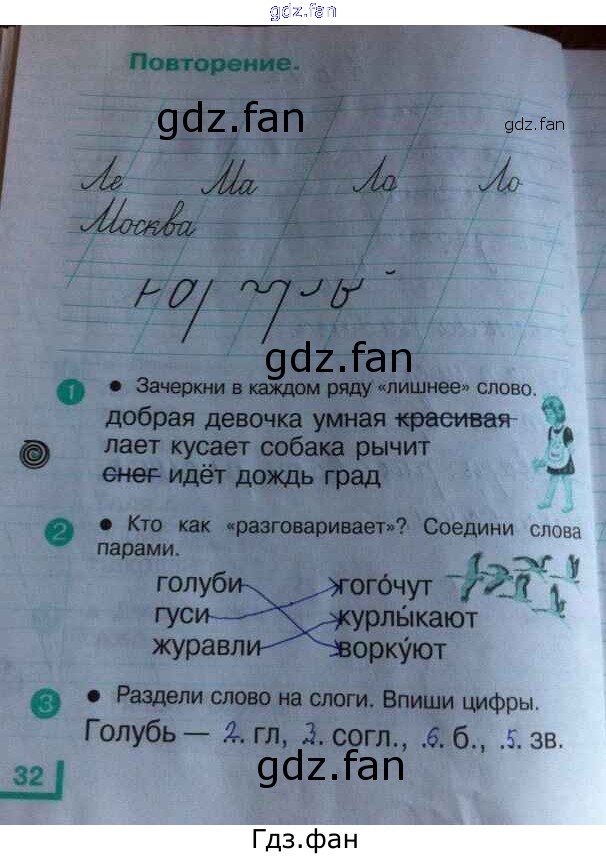 gdz.fan
Повторение.
gdz.fan
gdz.fan
Ле Ма Ла Ло
Москва
gdz.fan
1 • Зачеркни в каждом ряду «лишнее» слово.
добрая девочка умная красивая
лает кусает собака рычит
снег идёт дождь град
2 • Кто как «разговаривает»? Соедини слова
парами.
голуби гого́чут
гуси курлы́кают
журавли ворку́ют
3 • Раздели слово на слоги. Впиши цифры.
Голубь — 2. гл, 3. согл., .6. б., .5. зв.
gdz.fan
32
Гдз.фан